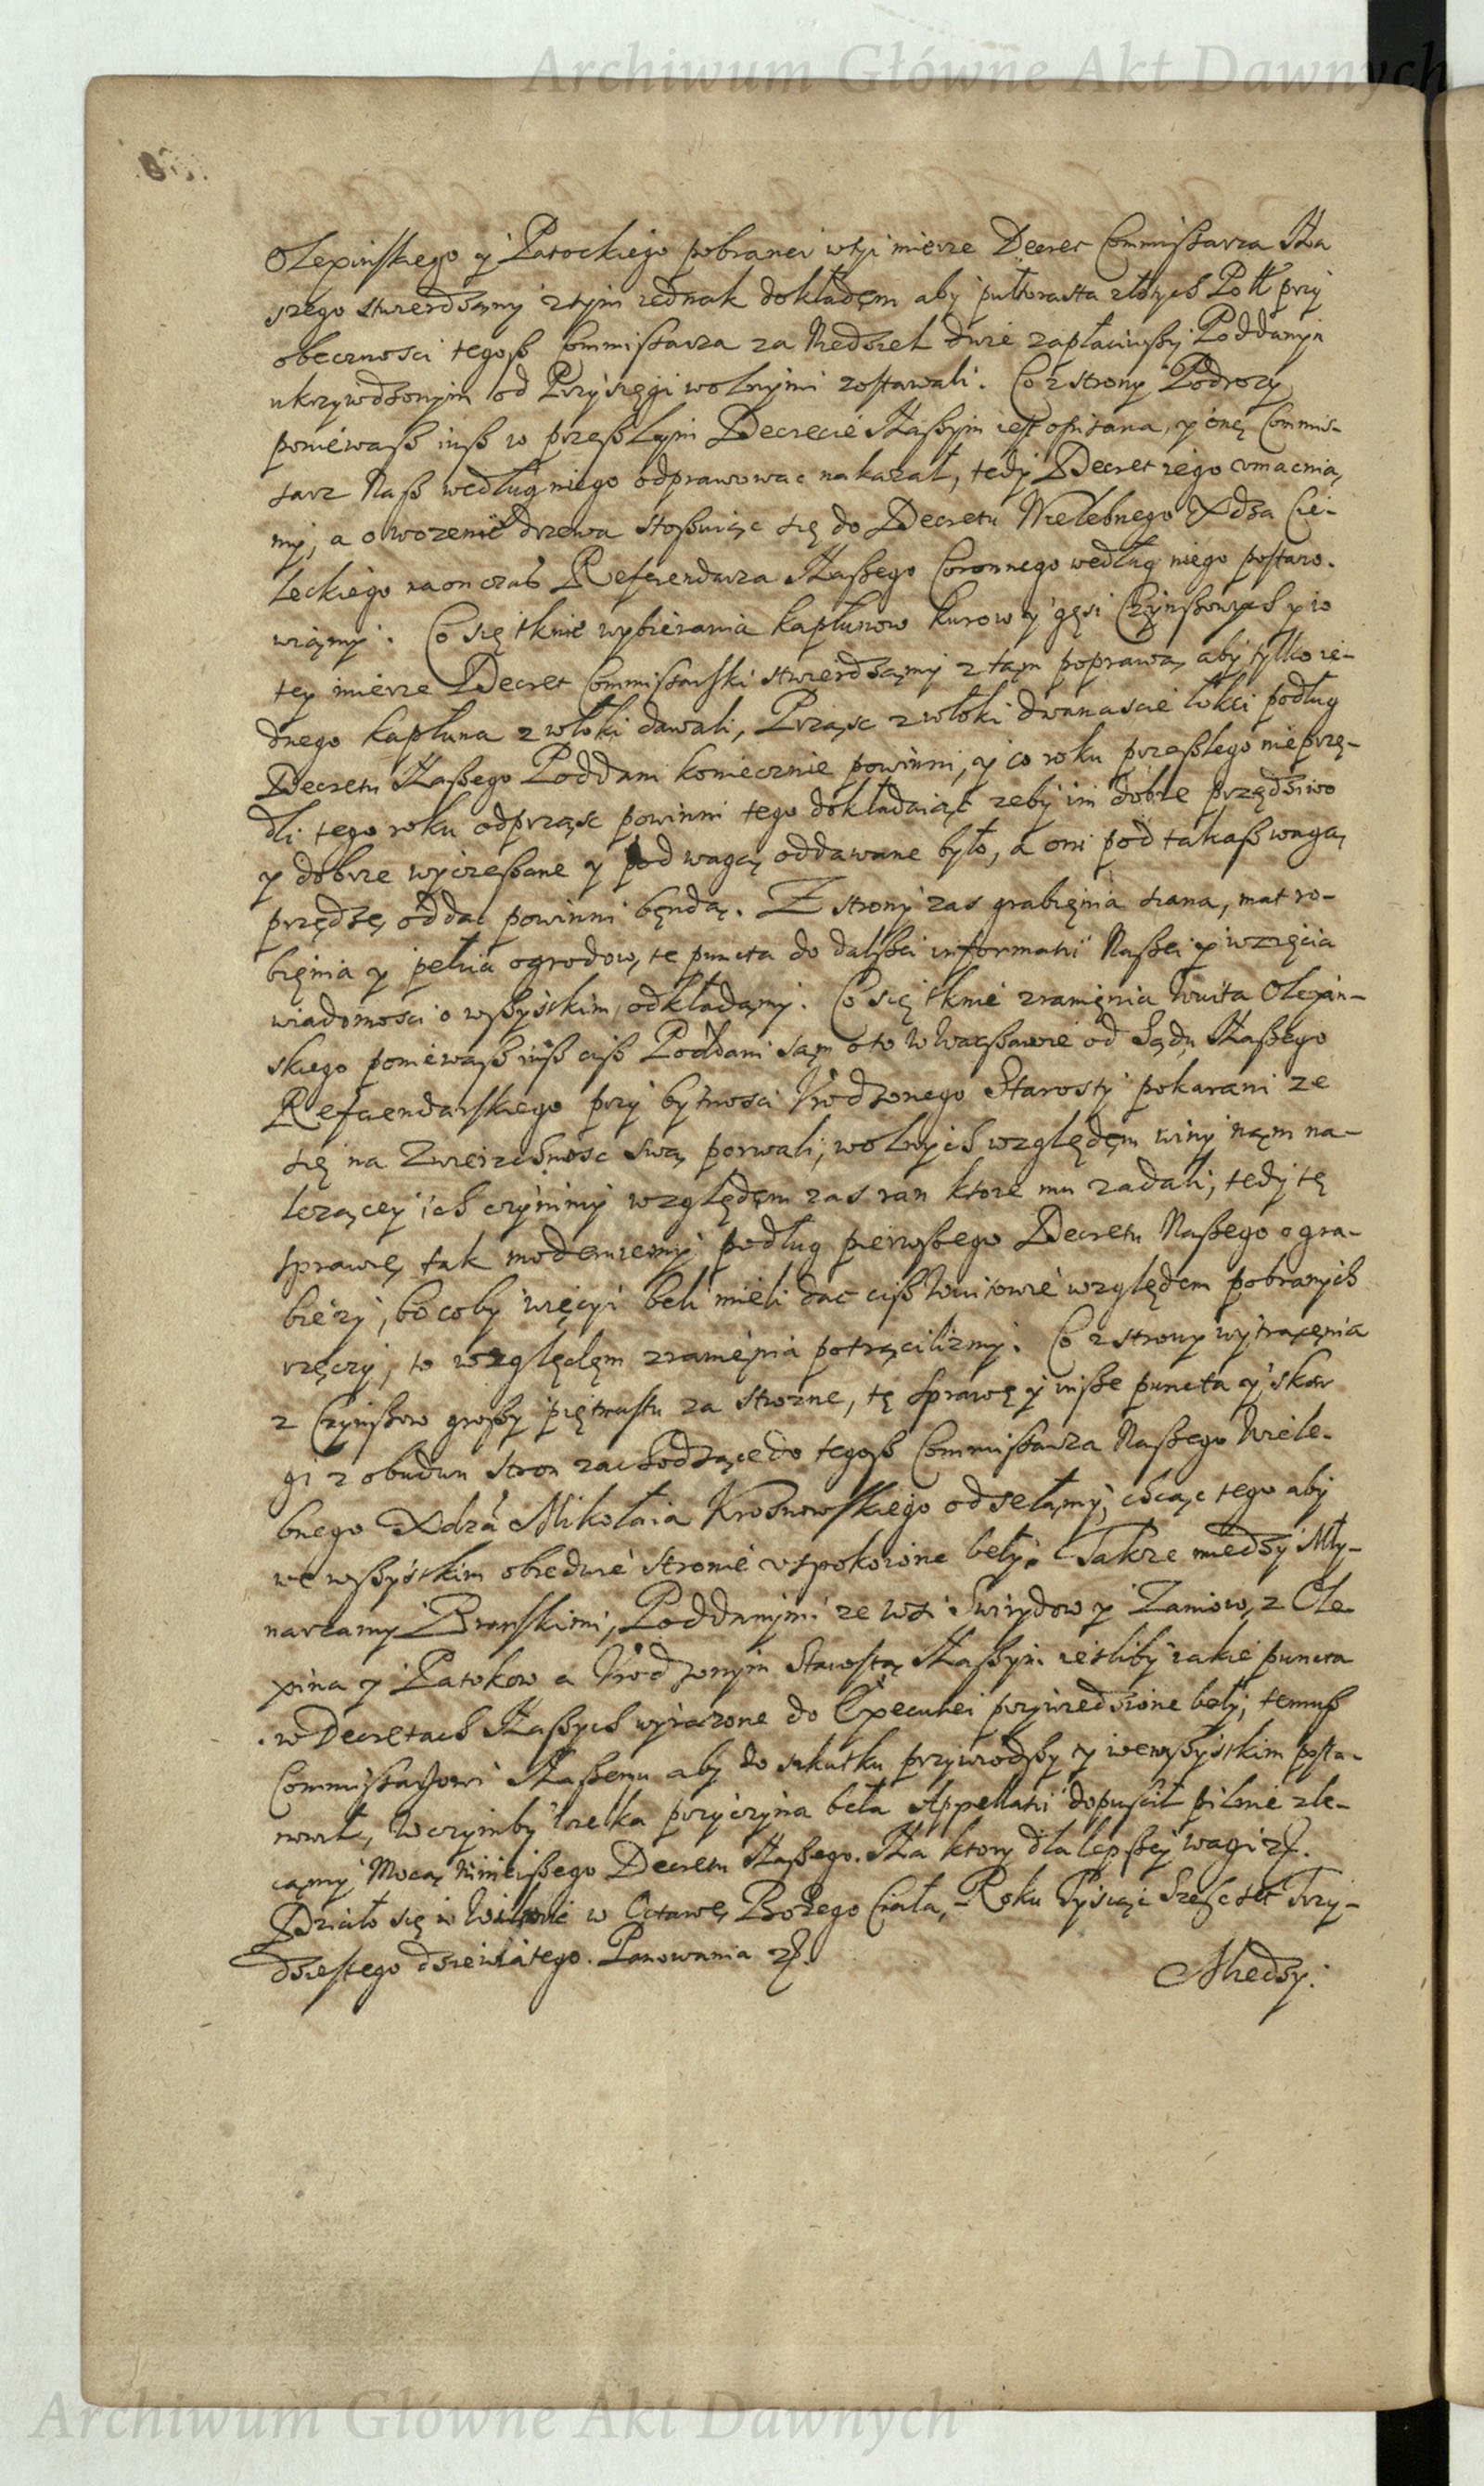 Archiwum Główne Akt Dawnych
Olexinskiego y Patockiego pobranei wtyi mierze Decret Commissarza Na
szego stwierdzamy ztym iednak dokładęm aby pułtorasta złotych Poll przy
obecznosci tegosz Commissarza za Niedziel dwie zapłaciwszy Poddanym
ukrzywdzonym od Przysięgi wolnymi zostawali. Co z strony Podrozy
poniewasz iusz w przeszłym Decrecie Naszym iest opisana, y onę Commis-
sarz Nasz według niego odprawowac nakazał, tedy Decret iego vmacnia
my, a o wozenie drzewa stosuiąc się do Decretu Wielebnego Xdza Cie-
leckiego naonczas Referendarza Naszego Coronnego według niego postano-
wiąmy. Co się tknie wybierania kapłunow kurow y gęsi Czynszowych y w
tey mierze Decret Commissarski stwierdzamy z tąm poprawą, aby tylko ie-
dnego kapłuna z włoki dawali, Prząsc z włoki dwanascie łokci podług
Decretu Naszego Poddani koniecznie powinni, y co roku przeszłego nieprzę-
dli tego roku odprząsc powinni tego dokładaiąc zeby im dobre przędziwo
y dobrze wyczesane y pod wagą oddawane było, a oni pod takasz wagą
przędzę oddac powinni będą. Z strony zas grabięnia siana, mat ro-
bięnia y pełcia ogrodow, te puncta do dalszei informatii Naszei y wzięcia
wiadomosci o wszystkim, odkładamy. Co się tknie zranięnia Woita Olexin-
skiego poniewasz iusz cisz Poddani sąm oto w Warszawie od Sądu Naszego
Referendarskiego przy bytnosci Urodzonego Starosty pokarani ze
się na Zwierzchnosc swą porwali, wolnych względęm winy nąm na-
lezącey ich czynimy względęm zas ran ktore mu zadali, tedy tę
sprawę tak moderuiemy podług pierwszego Decretu Naszego o gra-
biezy, bo coby więcyi beli mieli dac cisz Woitowie względem pobranych
rzęczy, to względęm zranięnia potrącilizmy. Co z strony wytrącęnia
z Czynszow groszy piętnastu za strozne, tę sprawę y insze puncta y skar
gi z obudwu stron zachodzące do tegosz Commissarza Naszego Wiele-
bnego Xdza Mikołaia Krosnowskiego odsełąmy, chcąc tego aby
we wszystkim obiedwie stronie vspokoione beły. Takze miedzy Mły-
narzamy Branskimi, Poddanymi ze Wsi Swirydow y Zaniow, z Ole
xina y Patokow a Urodzonym Starostą Naszym iesliby iakie puncta
w Decretach Naszych wyrazone do Executiei przywiedzione beły, temusz
Commissarzowi Naszemu aby do skutku przywodszy y wewszystkim posta-
nowił, w czymby wielka przyczyna beła Appellatii dopuscił pilnie zle-
cąmy Mocą ninieiszego Decretu Naszego. Na ktory dla lepszey wagi etc.
Działo się w Wilnie w Octawę Bożego Ciała, Roku Tysiąc Szescset Trzy-
dziestego dziewiątego. Panowania etc.
Miedzy.
Archiwum Główne Akt Dawnych